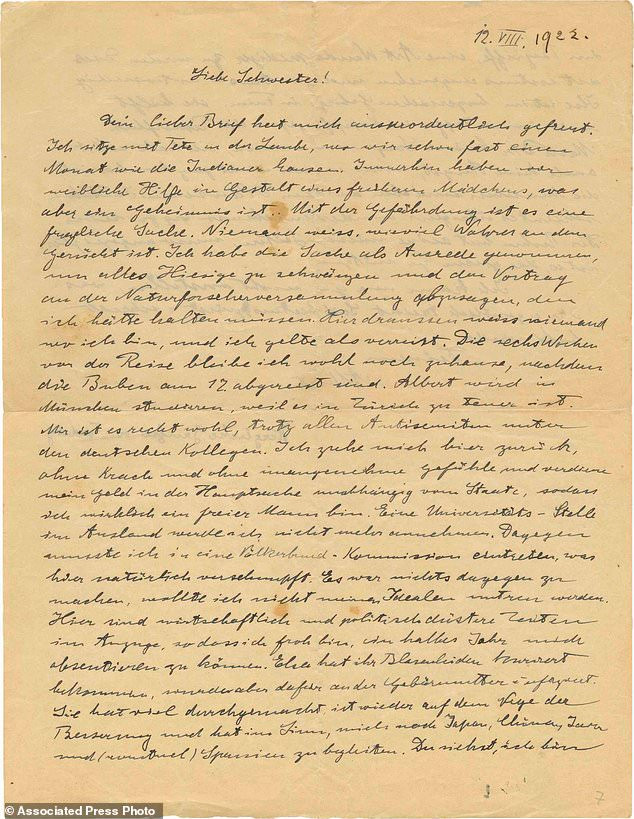 12. VIII. 1922.
Liebe Schwester!
Dein lieber Brief hat mich ausserordentlich gefreut.
Ich sitze mit Tete in der Laube, wo wir schon fast einen
Monat wie die Indianer hausen. Immerhin haben wir
weibliche Hilfe in Gestalt eines früheren Mädchens, was
aber ein Geheimnis ist. Mit der Gefährdung ist es eine
fragliche Sache. Niemand weiss, wieviel Wahres an dem
Gerücht ist. Ich habe die Sache als Ausrede genommen,
um alles Hiesige zu schwänzen und den Vortrag
an der Naturforscherversammlung abzusagen, den
ich hätte halten müssen. Hier draussen weiss niemand
wo ich bin, und ich gelte als verreist. Die sechs Wochen
vor der Reise bleibe ich wohl noch zuhause, nachdem
die Buben am 12 abgereist sind. Albert wird in
München studieren, weil es in Zürich zu teuer ist.
Mir ist es recht wohl, trotz allen Antisemiten unter
den deutschen Kollegen. Ich ziehe mich hier zurück,
ohne Krach und ohne unangenehme Gefühle, und verdiene
mein Geld in der Hauptsache unabhängig vom Staate, sodass
ich wirklich ein freier Mann bin. Eine Universitäts-Stelle
im Ausland werde ich nicht mehr annehmen. Dagegen
musste ich in eine Völkerbund-Kommission eintreten, was
hier natürlich verschnupft. Es war nichts dagegen zu
machen, wollte ich nicht meinen Idealen untreu werden.
Hier sind wirtschaftlich und politisch düstere Zeiten
im Anzuge, sodass ich froh bin, ein halbes Jahr mich
absentieren zu können. Elsa hat ihr Blasenleiden
bekommen, wurde aber dafür an der Gebärmutter
Sie hat viel durchgemacht, ist wieder auf dem Wege der
Besserung und hat im Sinn, mich nach Japan, China, Java
und (eventuel) Spanien zu begleiten. Du siehst, ich bin
7
© Associated Press Photo